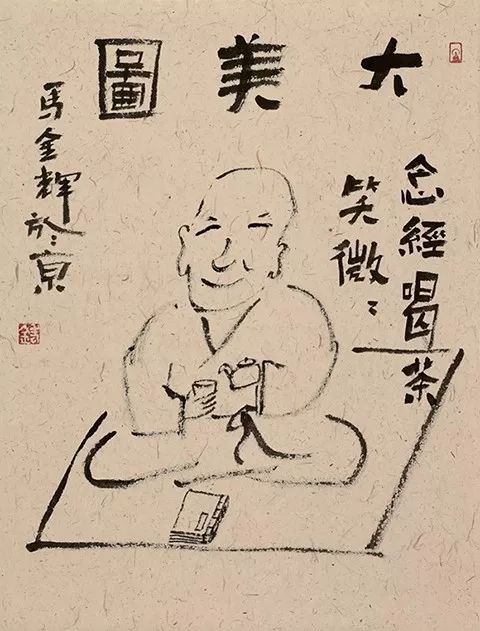 大美圖
念經喝茶
笑微〻
馬金輝於京